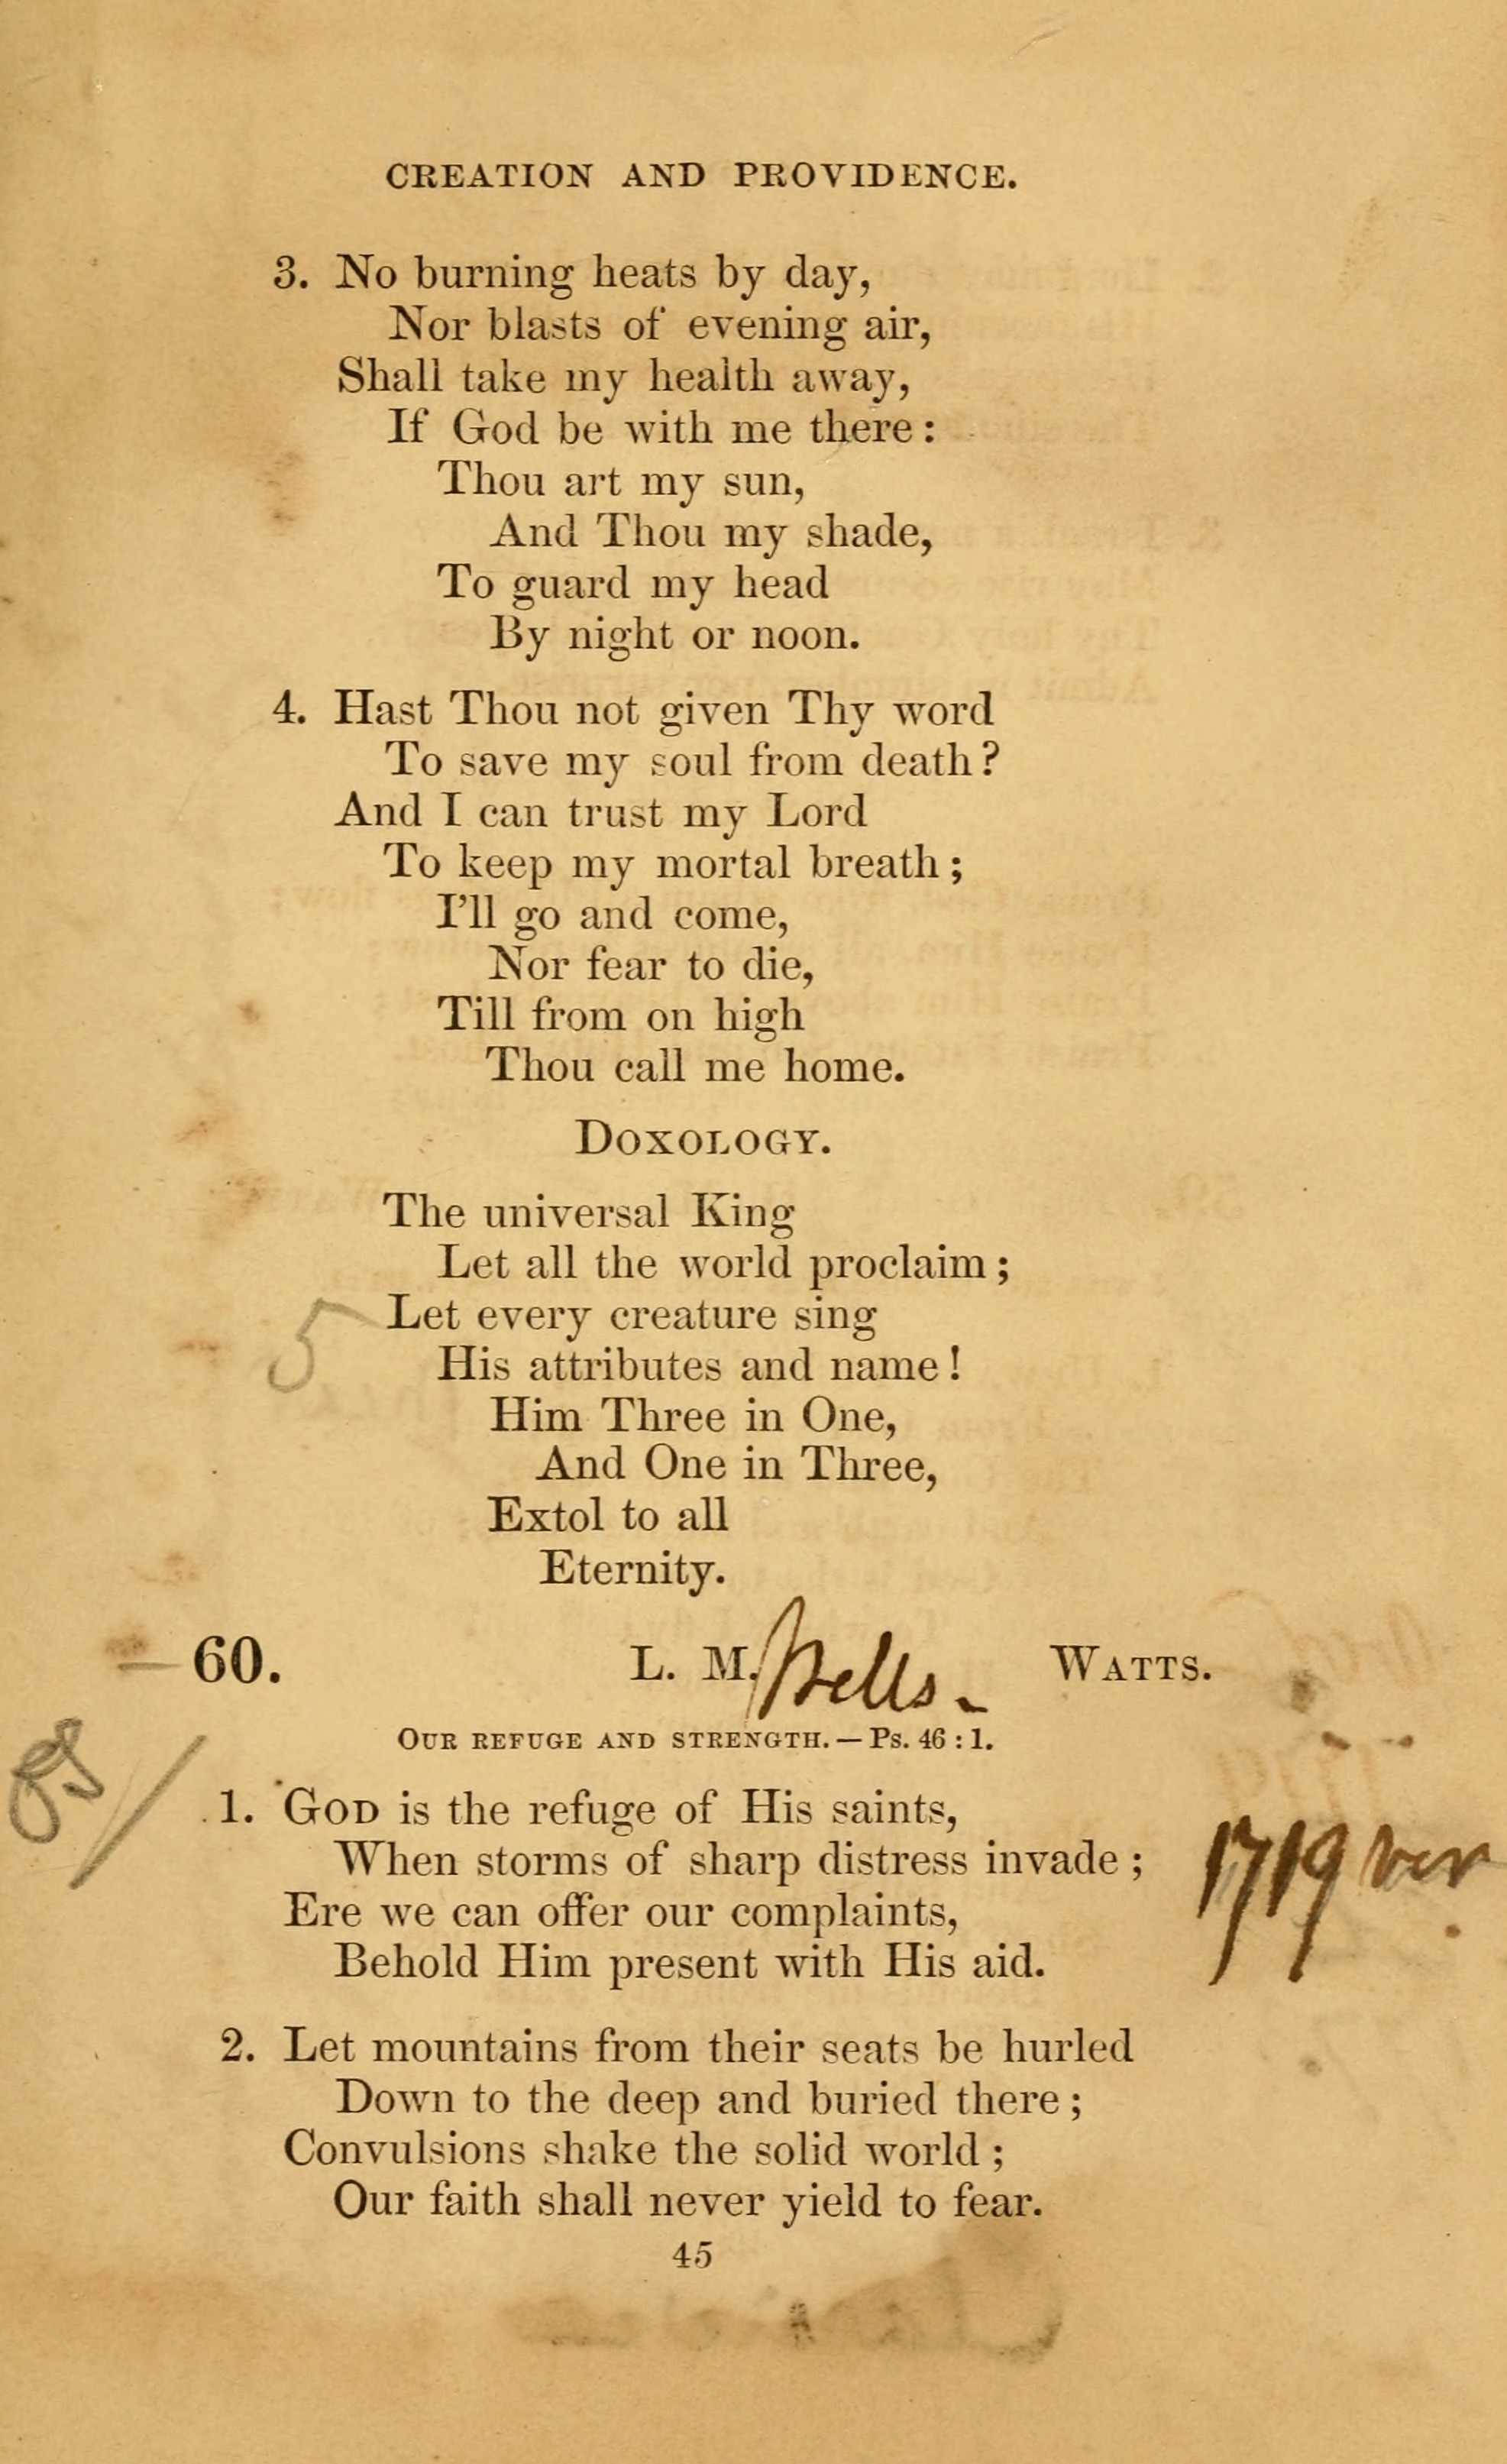 CREATION AND PROVIDENCE.
3. No burning heats by day,
Nor blasts of evening air,
Shall take my health away,
If God be with me there:
Thou art my sun,
And Thou my shade,
To guard my head
By night or noon.
4. Hast Thou not given Thy word
To save my soul from death?
And I can trust my Lord
To keep my mortal breath;
I'll go and come,
Nor fear to die,
Till from on high
Thou call me home.
DOXOLOGY.
The universal King
Let all the world proclaim;
5 Let every creature sing
His attributes and name!
Him Three in One,
And One in Three,
Extol to all
Eternity.
60. L. M. Wells. WATTS.
OUR REFUGE AND STRENGTH.—Ps. 46:1.
1. GOD is the refuge of His saints,
When storms of sharp distress invade;
1719 ver
Ere we can offer our complaints,
Behold Him present with His aid.
2. Let mountains from their seats be hurled
Down to the deep and buried there;
Convulsions shake the solid world;
Our faith shall never yield to fear.
45